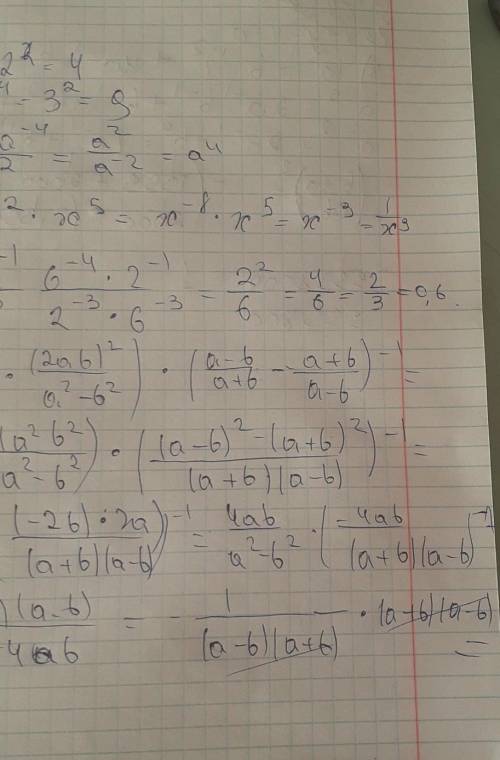 2² = 4
= 3² = 9
a⁻⁴/2 = a²/a⁻² = a⁴
² · x⁵ = x⁻⁸ · x⁵ = x⁻³ = 1/x³
⁻¹ (6⁻⁴ · 2⁻¹)/(2⁻³ · 6⁻³) = 2²/6 = 4/6 = 2/3 = 0,6.
· (2ab)²/(a² - b²)) · ((a-b)/(a+b) - (a+b)/(a-b))⁻¹ =
(a²b²)/(a² - b²)) · (((a-b)² - (a+b)²)/((a+b)(a-b)))⁻¹ =
((-2b) · 2a)/((a+b)(a-b)))⁻¹ = 4ab/(a² - b²) · (-4ab/((a+b)(a-b)))⁻¹
)(a-b)/(-4ab) = - 1/((a-b)(a+b)) · (a+b)(a-b) =